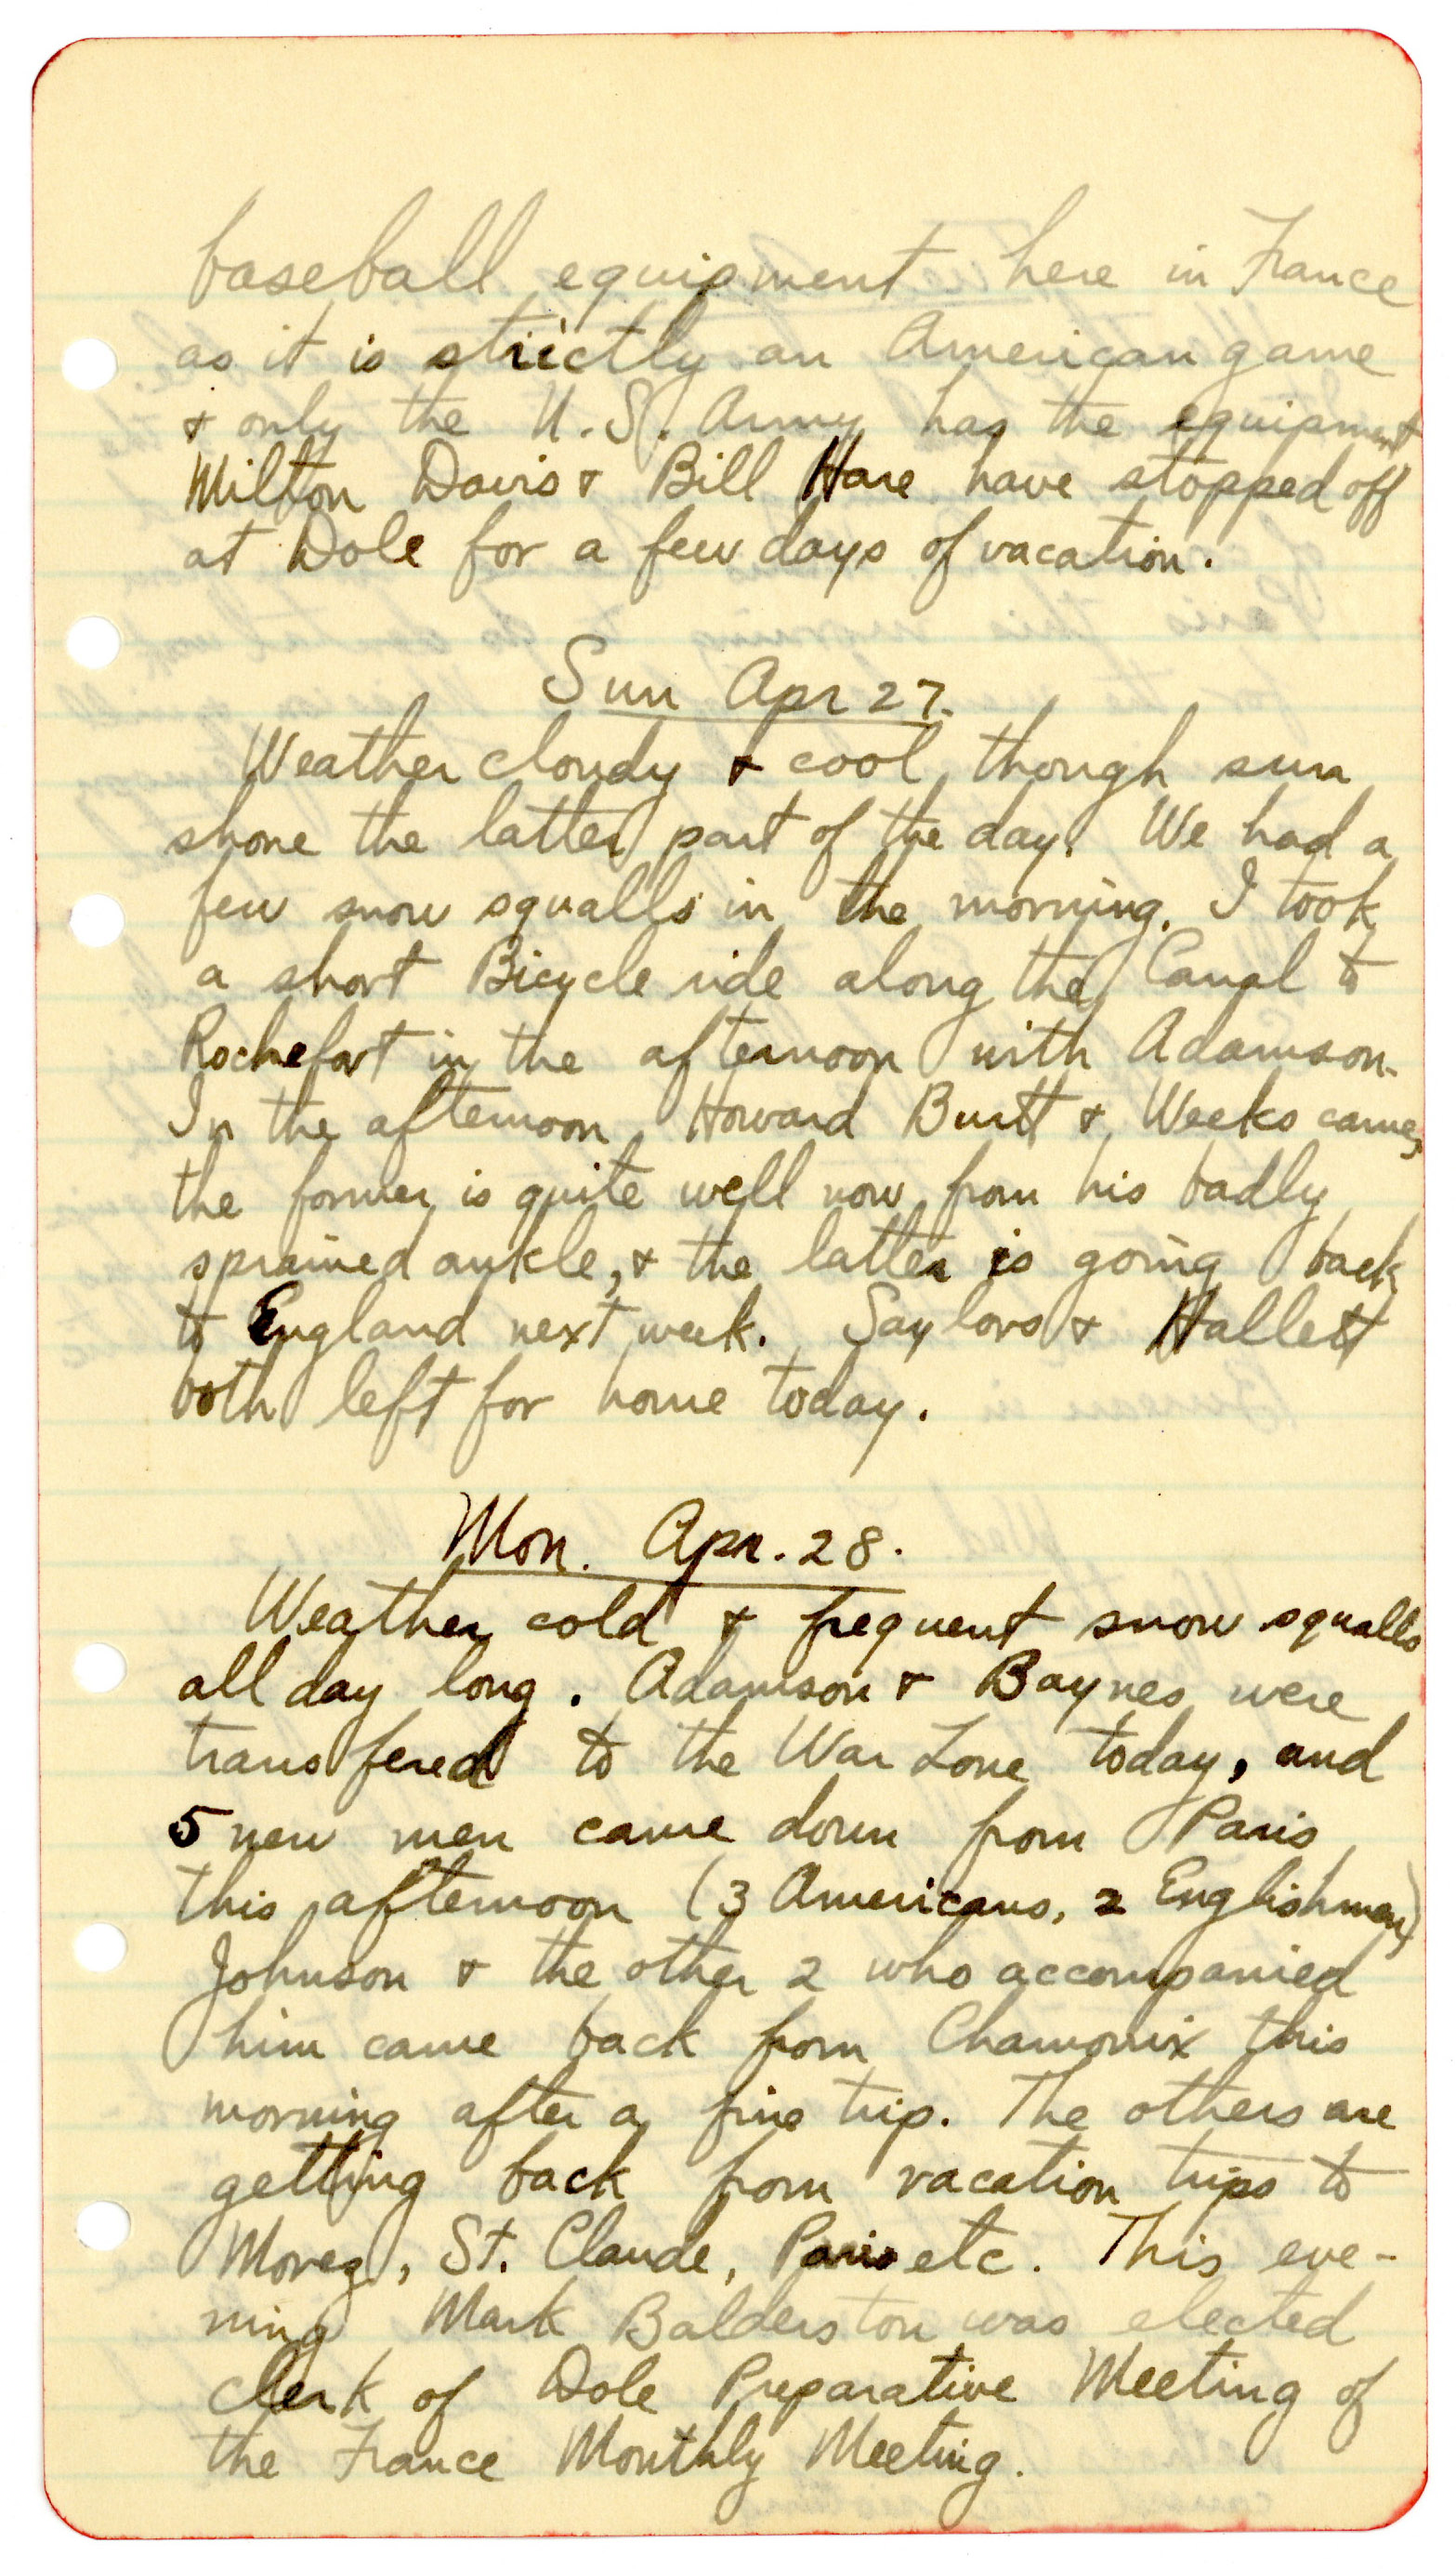 baseball equipment here in France
as it is strictly an American game
& only the U.S. Army has the equipment
Milton Davis & Bill Hare have stopped off
at Dole for a few days of vacation.
Sun Apr 27.
Weather cloudy & cool, though sun
shone the latter part of the day. We had a
few snow squalls in the morning. I took
a short Bicycle ride along the Canal to
Rochefort in the afternoon with Adamson.
In the afternoon Howard Burtt & Weeks came,
the former is quite well now from his badly
sprained ankle, & the latter is going back
to England next week. Saylors & Hallett
both left for home today.
Mon. Apr. 28.
Weather cold & frequent snow squalls
all day long. Adamson & Baynes were
transfered to the War Zone today, and
5 new men came down from Paris
this afternoon (3 Americans, 2 Englishmen)
Johnson & the other 2 who accompanied
him came back from Chamonix this
morning after a fine trip. The others are
getting back from vacation trips to
Morez, St. Claude, Paris etc. This eve-
ning Mark Balderston was elected
clerk of Dole Preparative Meeting of
the France Monthly Meeting.